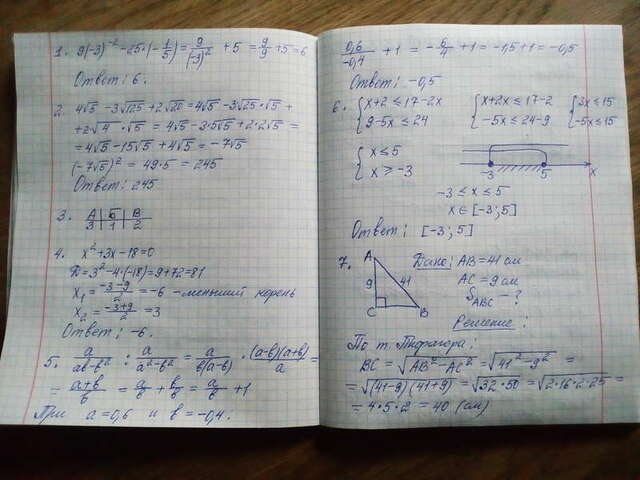 1. 9(-3)⁻² - 25·(-1/5) = 9/(-3)² + 5 = 9/9 + 5 = 6
Ответ: 6.
2. 4√5 - 3√125 + 2√20 = 4√5 - 3√25·√5 +
+ 2√4·√5 = 4√5 - 3·5√5 + 2·2√5 =
= 4√5 - 15√5 + 4√5 = -7√5
(-7√5)² = 49·5 = 245
Ответ: 245
3. А | Б | В
3 | 1 | 2
4. x² + 3x - 18 = 0
D = 3² - 4·(-18) = 9 + 72 = 81
x₁ = (-3-9)/2 = -6 - меньший корень
x₂ = (-3+9)/2 = 3
Ответ: -6.
5. a/(ab-b²) : a/(a²-b²) = a/(b(a-b)) · (a-b)(a+b)/a =
= (a+b)/b = a/b + b/b = a/b + 1
При a = 0,6 и b = -0,4:
0,6/-0,4 + 1 = -6/4 + 1 = -1,5 + 1 = -0,5
Ответ: -0,5
6. { x+2 ≤ 17-2x { x+2x ≤ 17-2 { 3x ≤ 15
{ 9-5x ≤ 24 { -5x ≤ 24-9 { -5x ≤ 15
{ x ≤ 5
{ x ≥ -3
-3 5 x
-3 ≤ x ≤ 5
x ∈ [-3; 5]
Ответ: [-3; 5]
7. A 9 41 C B
Дано: AB = 41 см
AC = 9 см
S ABC - ?
Решение:
По т. Пифагора:
BC = √AB² - AC² = √41² - 9² =
= √(41-9)(41+9) = √32·50 = √2·16·2·25 =
= 4·5·2 = 40 (см)